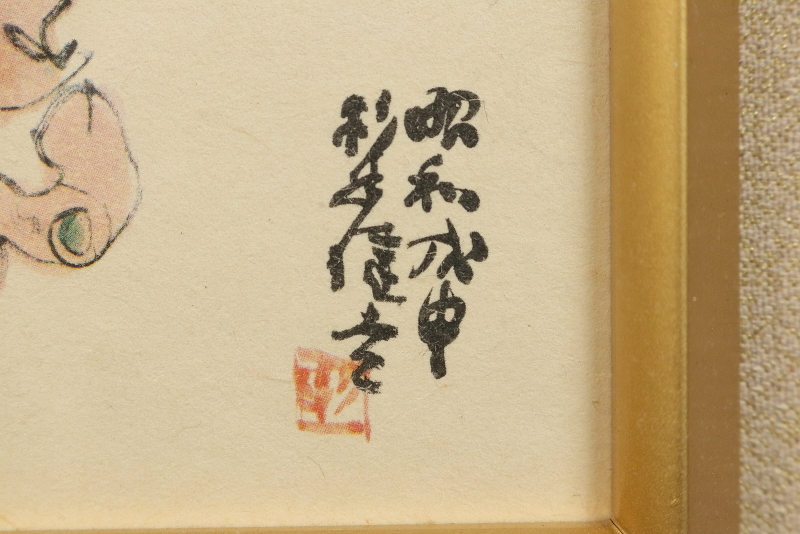 昭和戊申
杉本健吉